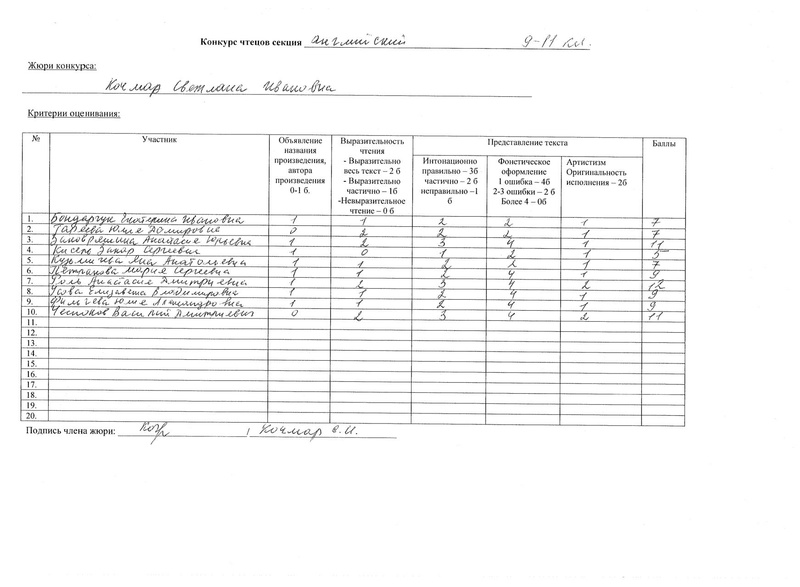 Конкурс чтецов секция английский 9-11 кл.
Жюри конкурса:
Кочмар Светлана Ивановна
Критерии оценивания:
№ Участник Объявление названия произведения, автора произведения 0-1 б. Выразительность чтения - Выразительно весь текст – 2 б - Выразительно частично – 1б -Невыразительное чтение – 0 б Представление текста Баллы
Интонационно правильно – 3б частично – 2 б неправильно –1 б Фонетическое оформление 1 ошибка – 4б 2-3 ошибки – 2 б Более 4 – 0б Артистизм Оригинальность исполнения – 2б
1. Бондарчук Екатерина Ивановна 1 1 2 2 1 7
2. Гареева Юлия Дамировна 0 2 2 2 1 7
3. Анастасия Юрьевна 1 2 3 4 1 11
4. Кисель Захар Сергеевич 1 0 1 2 1 5
5. Кузьмичева Яна Анатольевна 1 1 2 2 1 7
6. Мария Сергеевна 1 1 2 4 1 9
7. Роль Анастасия Дмитриевна 1 2 3 4 2 12
8. Елизавета Владимировна 1 1 2 4 1 9
9. Юлия Александровна 1 1 2 4 1 9
10. Чесноков Василий Дмитриевич 0 2 3 4 2 11
11.
12.
13.
14.
15.
16.
17.
18.
19.
20.
Подпись члена жюри: / Кочмар С.И.